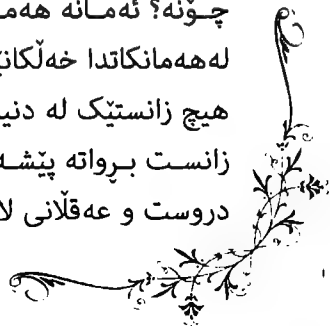 چـۆنە؟ ئەمـانە هەمـ
لەهەمانکاتدا خەڵکانێ
هیچ زانستێک لە دنیـ
زانسـت بـڕواتە پێشـە
دروست و عەقڵانی لا